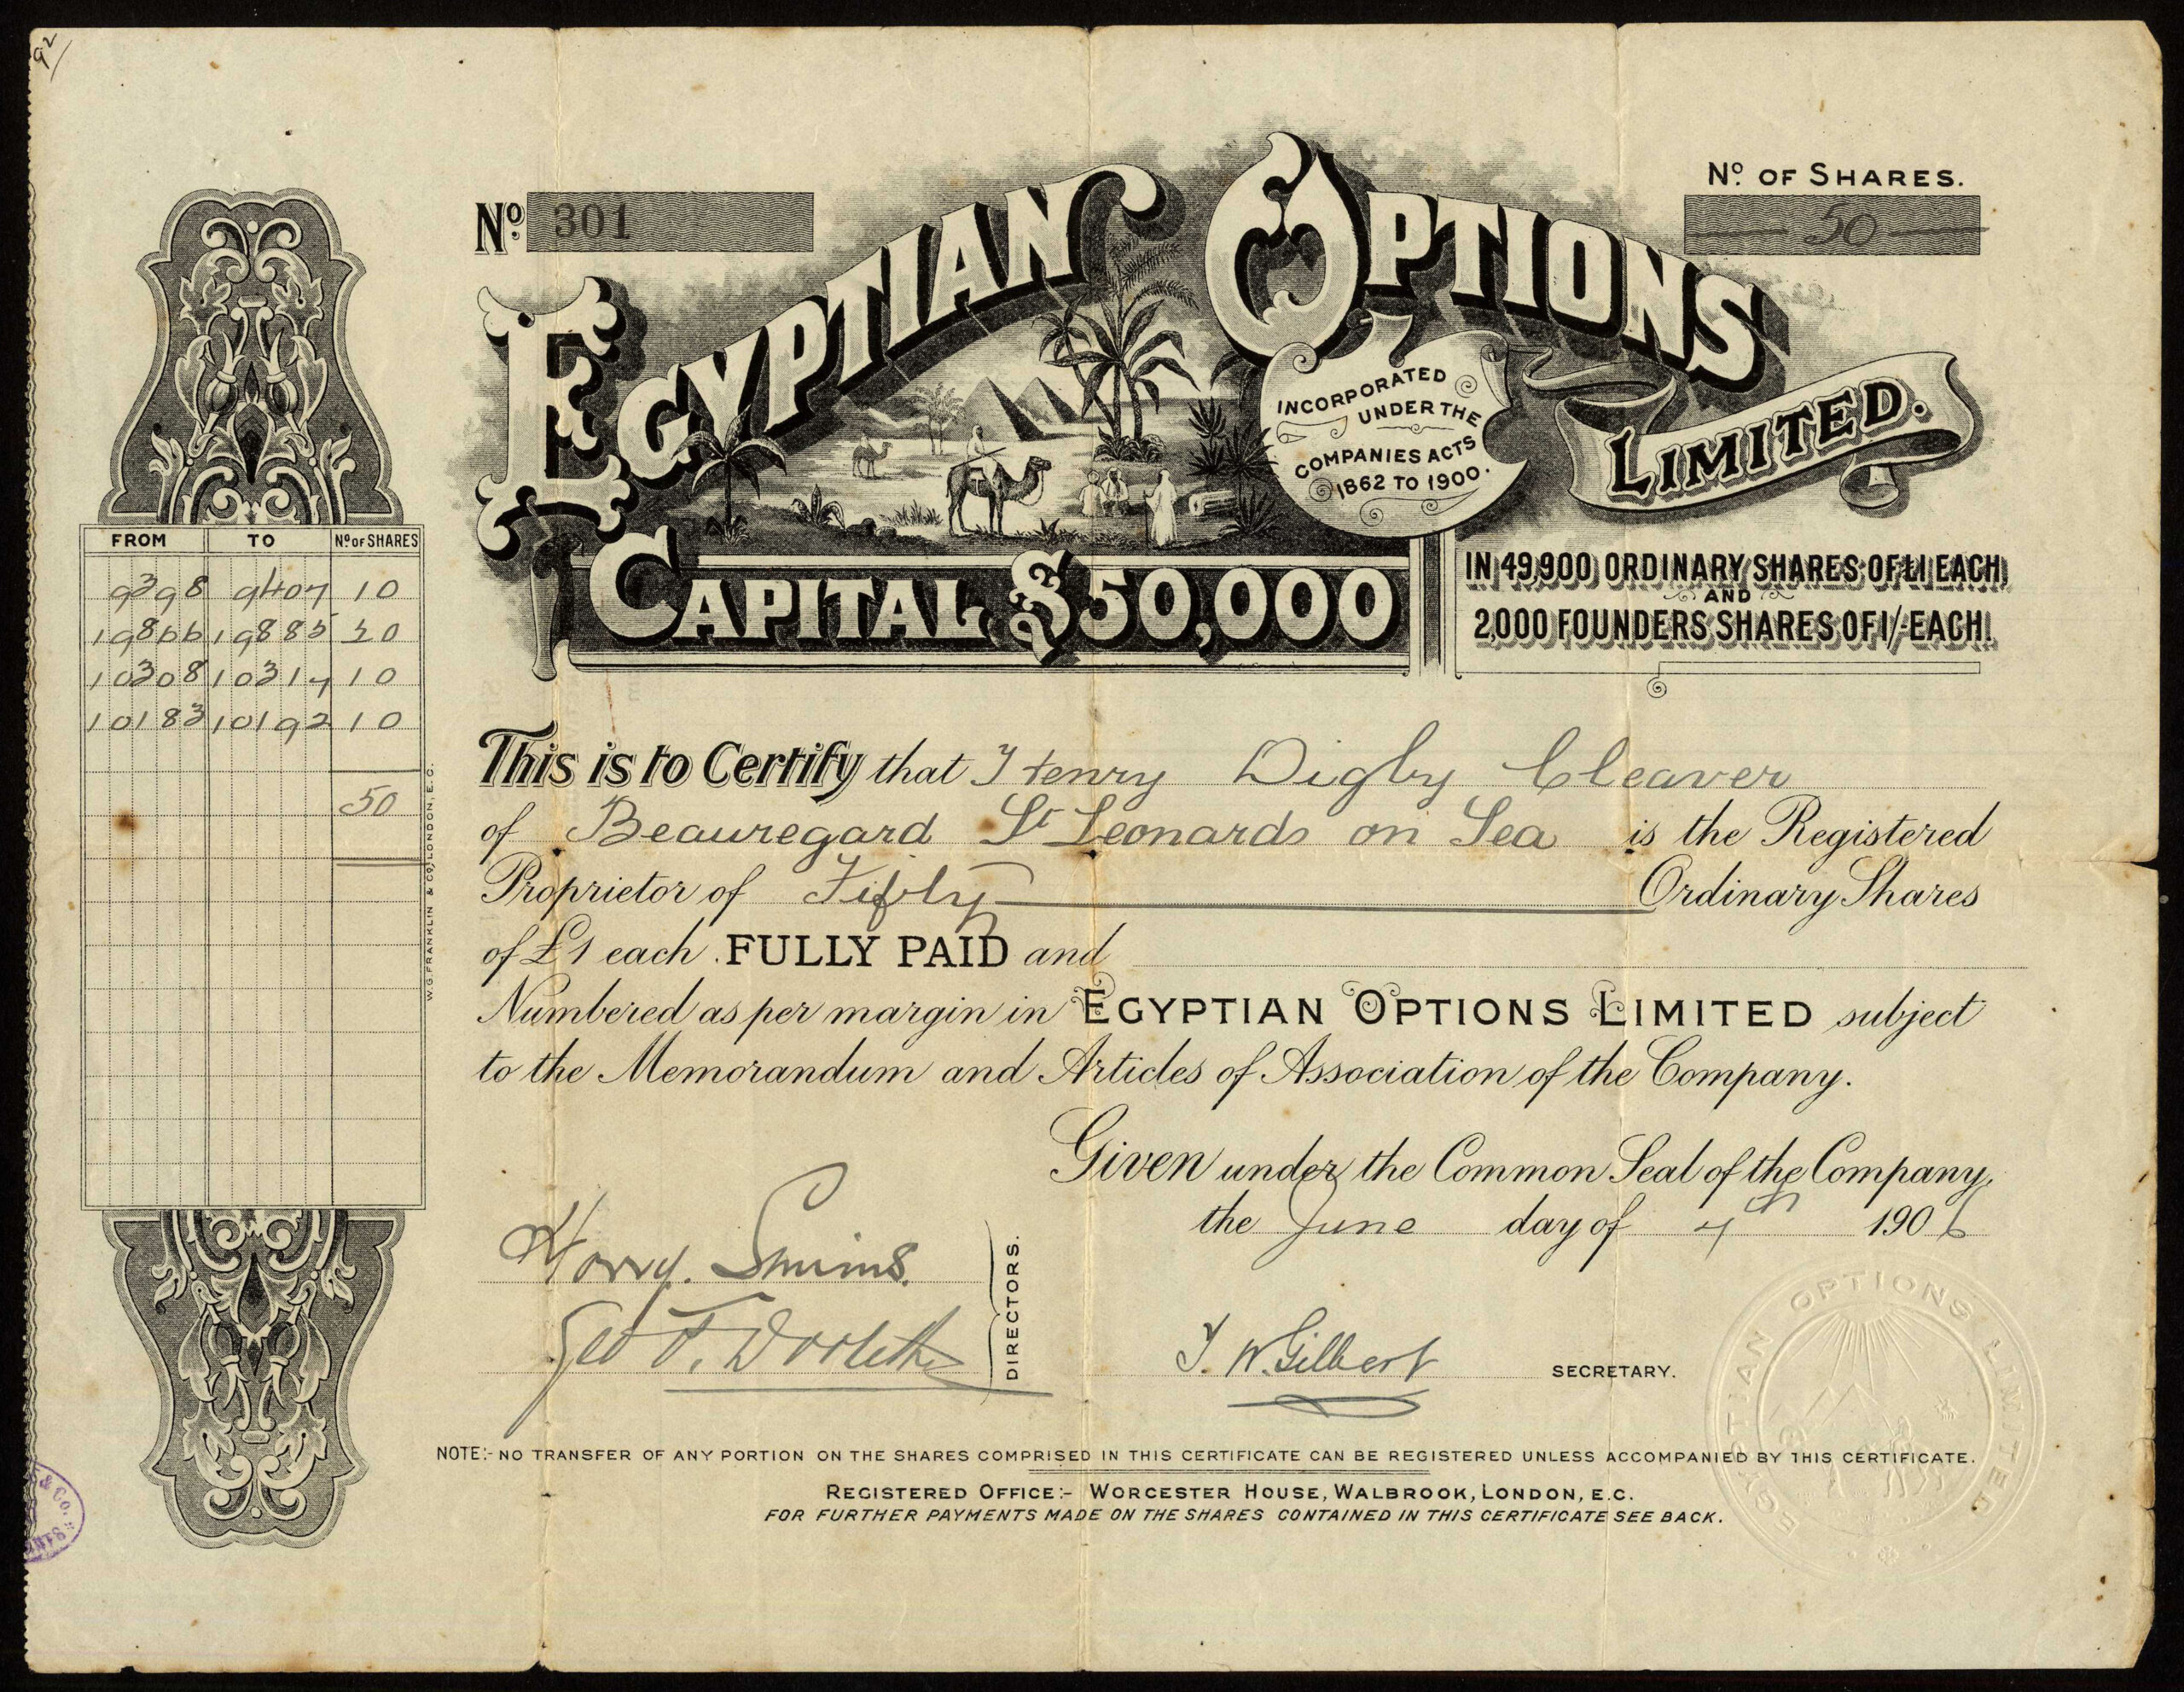 92/
No 301
No. OF SHARES.
50
EGYPTIAN OPTIONS
LIMITED.
INCORPORATED
UNDER THE
COMPANIES ACTS
1862 TO 1900.
CAPITAL £50,000
IN 49,900 ORDINARY SHARES OF £1 EACH,
AND
2,000 FOUNDERS SHARES OF 1/- EACH.
FROM TO No OF SHARES
9398 9407 10
19866 19885 20
10308 10317 10
10183 10192 10
50
W.G. FRANKLIN & CO, LONDON, E.C.
This is to Certify that Henry Digby Cleaver
of Beauregard St Leonards on Sea is the Registered
Proprietor of Fifty Ordinary Shares
of £1 each FULLY PAID and
Numbered as per margin in EGYPTIAN OPTIONS LIMITED subject
to the Memorandum and Articles of Association of the Company.
Given under the Common Seal of the Company,
the June day of 7th 1906
Harry. Simms.
Geo F.
DIRECTORS.
T. W. Gilbert
SECRETARY.
EGYPTIAN OPTIONS LIMITED
NOTE:- NO TRANSFER OF ANY PORTION ON THE SHARES COMPRISED IN THIS CERTIFICATE CAN BE REGISTERED UNLESS ACCOMPANIED BY THIS CERTIFICATE.
REGISTERED OFFICE:- WORCESTER HOUSE, WALBROOK, LONDON, E.C.
FOR FURTHER PAYMENTS MADE ON THE SHARES CONTAINED IN THIS CERTIFICATE SEE BACK.
& CO.